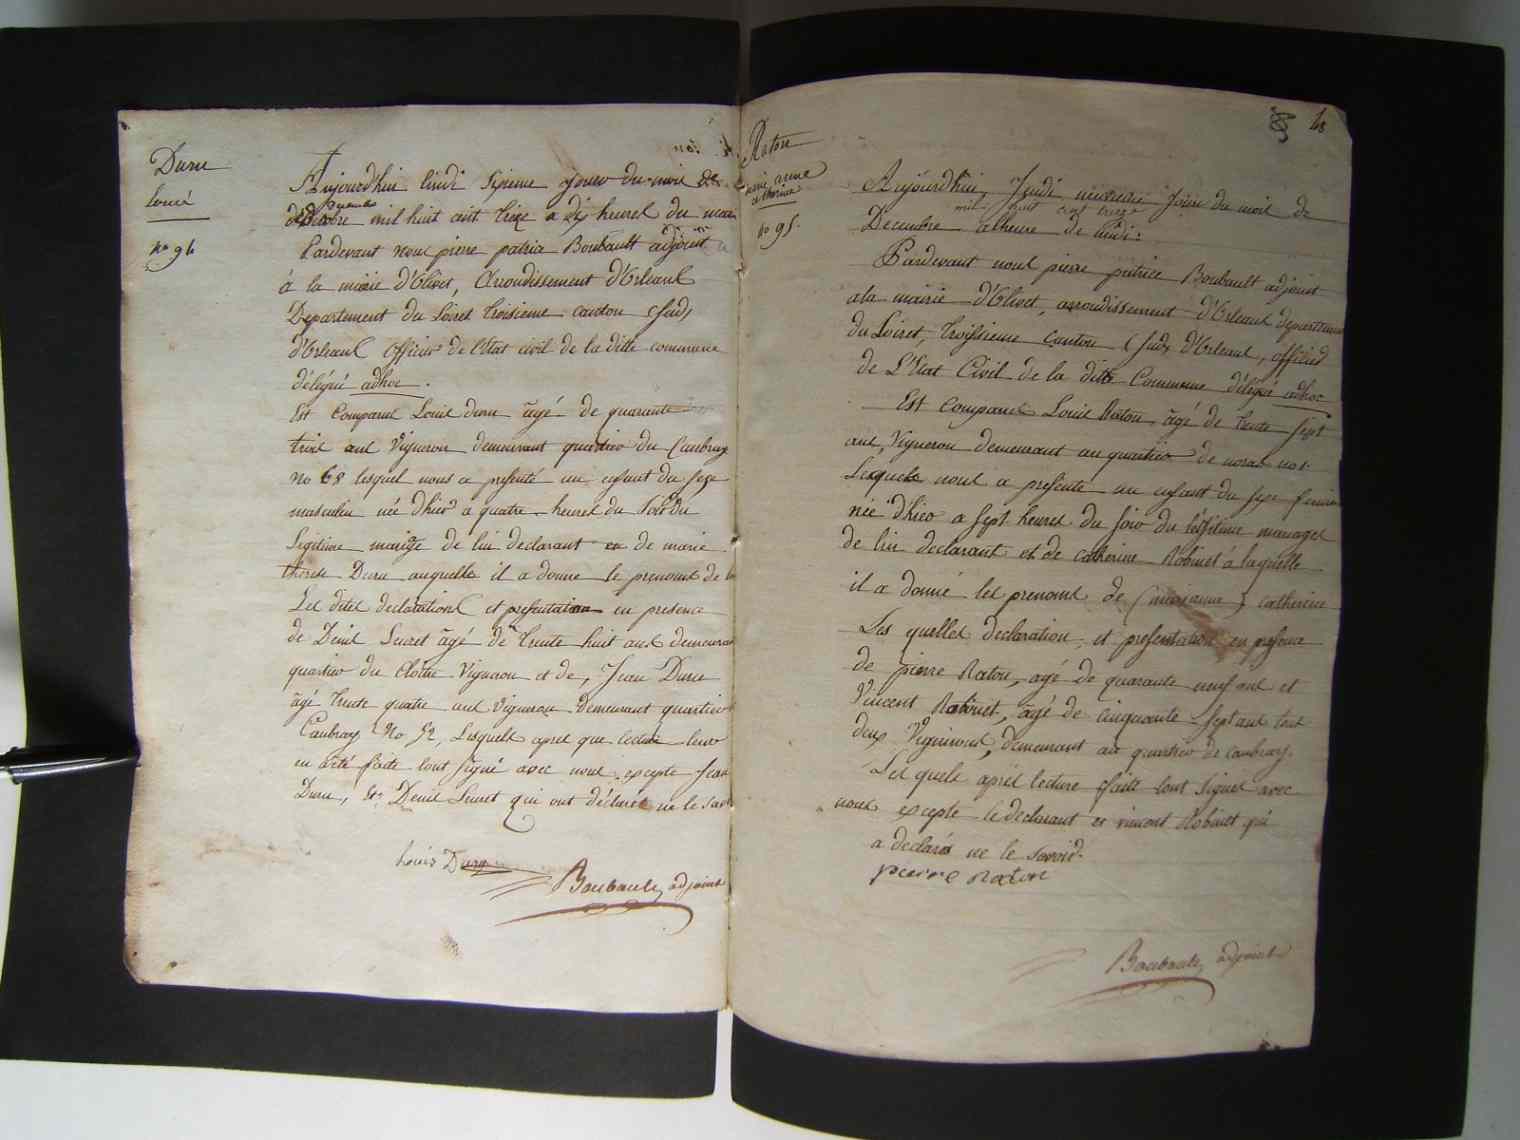 Duru
Louis
no 94
Aujourdhui lundi sixieme jour du mois de
Decembre
mil huit cent treize a dix heures du matin
Pardevant nous pierre patrice Boubault adjoint
à la mairie d'Olivet, Arrondissement d'Orleans
Departement du Loiret troisieme canton (sud)
d'Orleans officier de l'Etat civil de la ditte commune
délégué adhoc.
Est Comparus Louis duru âgé de quarante
trois ans Vigneron demeurant quartier du Caubray
no 68 lesquel nous a presenté un enfant du sexe
masculin née d'hier a quatre heures du soir du
Legitime mariage de lui declarant et de marie
therese Duru auquelle il a donne le prenoms de
Les dites declarations et presentation en presence
de Denis Sevret âgé de trente huit ans demeurant
quartier du Cloitre Vigneron et de, Jean Duru
âgé trente quatre ans Vigneron demeurant quartier
Caubray No 52, Lesquels apres que lecture leur
en a été faite tout signé avec nous excepte Jean
Duru, et Denis Sevret qui ont déclarés ne le savoir
Louis Duru
Boubault adjoint
48
Raton
marie anne
catherine
no 95.
Aujourdhui, Jeudi neuvieme Jour du mois de
mil huit cent treize
Decembre a lheure de midi:
Pardevant nous pierre patrice Boubault adjoint
ala mairie d'Olivet, arroudissement d'Orleans departement
du Loiret, troisieme canton (sud) d'Orleans, officier
de L'Etat Civil de la ditte Commune délégué adhoc
Est comparus Louis Raton, âgé de trente sept
ans, Vigneron demeurant au quartier de noras no 1.
Lesquels nous a presenté un enfant du sexe feminin
née d'hier a sept heures du soir du legitime mariages
de lui declarant et de catherine Robinet à laquelle
il a donné les prenoms de (marianne) catherine
Les quelles declaration, et presentation en presence
de pierre Raton, agé de quarante neuf ans et
Vincent Robinet, âgé de cinquante sept ans tout
deux Vignerons, demeurant au quartier de caubray.
Les quels après lecture faite tout signes avec
nous excepte le declarant et vincent Robinet qui
a declarés ne le savoir.
pierre raton
Boubault adjoint